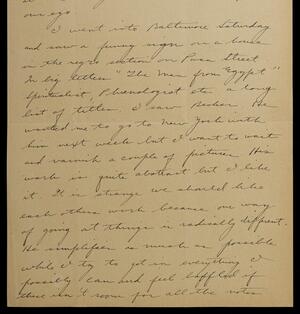 our ego
"I went into Baltimore Saturday
and saw a funny sign on a house
in the negro section on Penn Street
In big letters "The Man from Egypt"
Spiritualist, Phrenologist etc a long
list of titles. I saw Becker. He
wanted me to go to New York with
him next week but I want to wait
and varnish a couple of pictures. His
work is quite abstract but I like
it. It is strange we should like
each others work because our way
of going at things is radically different.
He simplifies as much as possible
while I try to get in everything I
possibly can and feel baffled if
there isn't room for all the notes